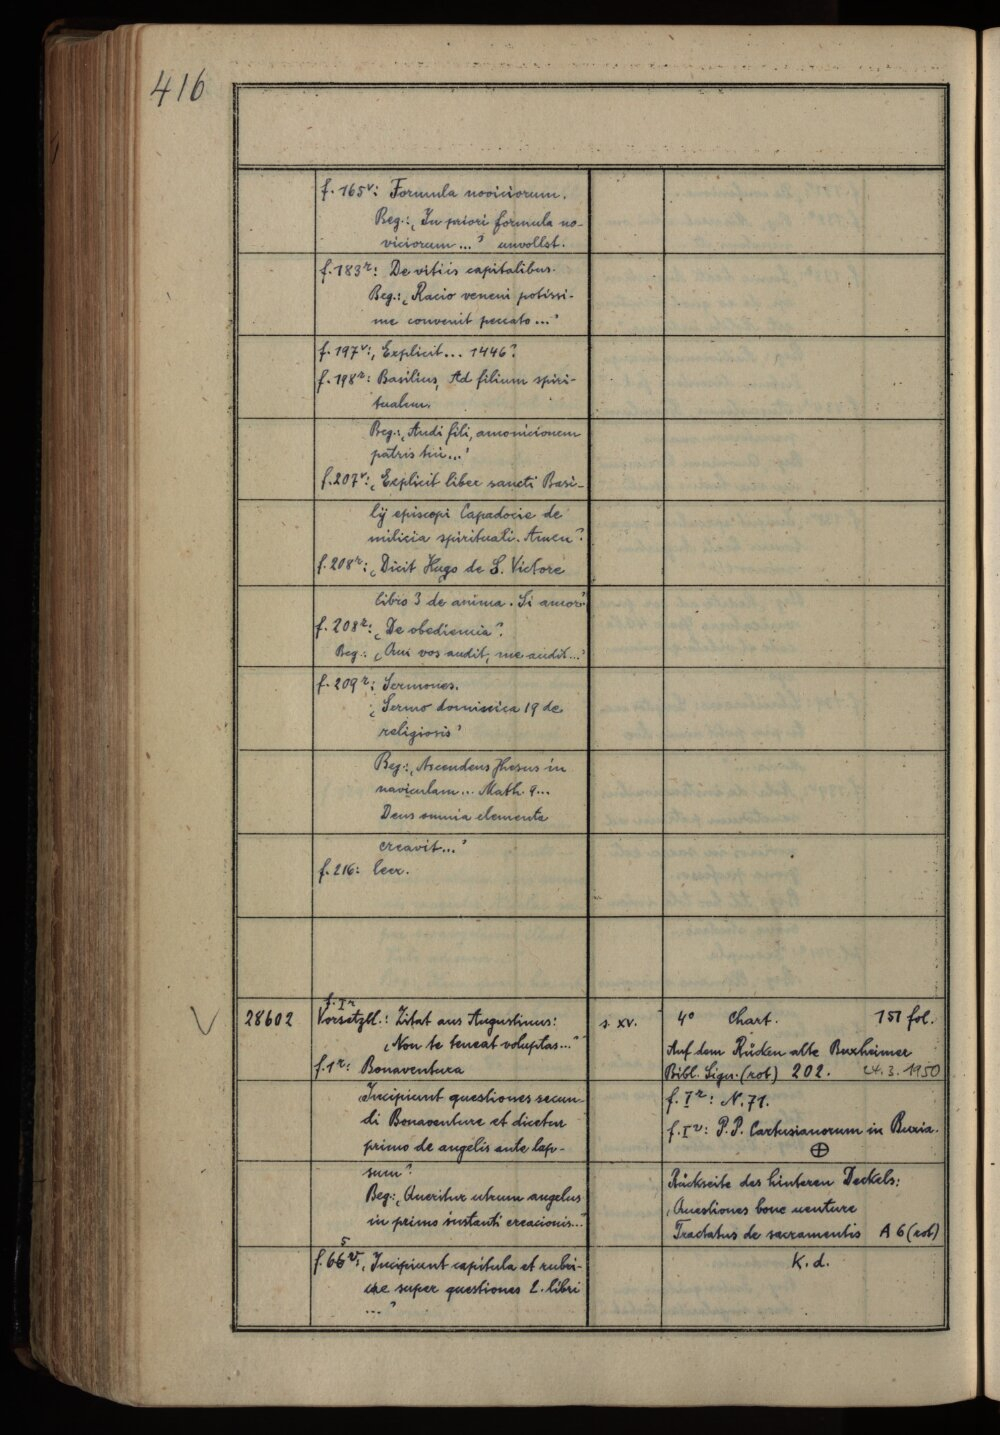 416
f. 165v: Formula noviciorum.
Beg.: ‚In priori formula no-
viciorum...‘ unvollst.
f. 183r: De vitiis capitalibus.
Beg.: ‚Racio veneni potissi-
me convenit peccato...‘
f. 197v: ‚Explicit... 1446‘.
f. 198r: Basilius, Ad filium spiri-
tualem.
Beg.: ‚Audi fili, amonicionem
patris tui...‘
f. 207v: ‚Explicit liber sancti Basi-
lij episcopi Capadocie de
milicia spirituali. Amen‘.
f. 208r: ‚Dicit Hugo de S. Victore
libro 3 de anima. Si amor‘.
f. 208r: ‚De obediencia‘.
Beg.: ‚Qui vos audit, me audit...‘
f. 209r: Sermones.
‚Sermo dominica 19 de
religiosis‘
Beg.: ‚Ascendens Jhesus in
naviculam... Math. 9...
Deus omnia elementa
creavit...‘
f. 216: leer.
f. Ir
28602 Vorsetzbl.: Zitat aus Augustinus: s. XV. 4° Chart. 151 fol.
‚Non te teneat voluptas...‘
Auf dem Rücken alte Buxheimer
f. 1r: Bonaventura
Bibl. Sign. (rot) 202. 24.3.1950
‚Incipiunt questiones secun-
f. Ir: N. 71.
di Bonaventure et dicetur
f. Iv: P. P. Cartusianorum in Buxia.
primo de angelis ante lap-
⊕
sum‘.
Rückseite des hinteren Deckels:
Beg.: ‚Queritur utrum angelus
‚Questiones bone venture
in primo instanti creacionis...‘
Tractatus de sacramentis A 6 (rot)
5
f. 66v: ‚Incipiunt capitula et rubri-
K. d.
che super questiones 2. libri
...‘